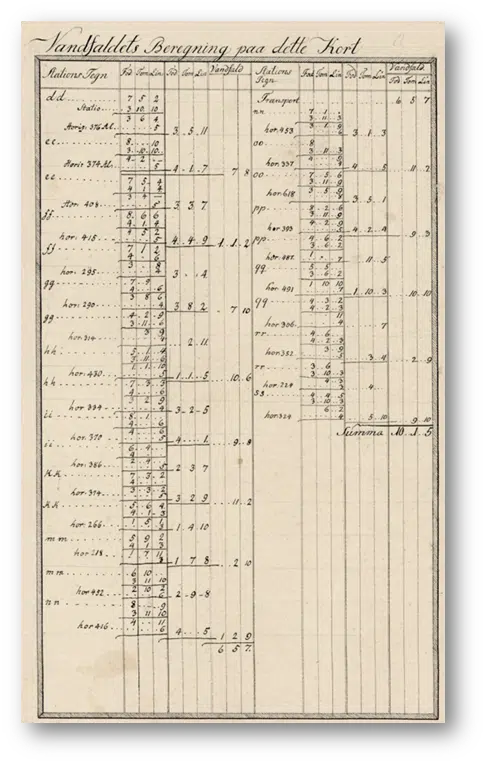 Vandfaldets Beregning paa dette Kort
Stations Tegn Fod Tom Lin Fod Tom Lin Vandfald
dd 7 5 2
Statio 3 10 10
3 6 4
Horiz: 376 Al. 5 3 5 11
ee 8 .. 10
3 10 10
4 2
Horiz 374 Al. 5 4 1 7 7 8
ee 7 5 4
4 1 4
3 4
Hor: 408 5 3 3 7
ff 8 6 6
4 1 4
4 5 2
hor: 415 5 4 4 9 1 1 2
ff 7 1 2
4 6
3 8
hor: 295 4 3 4
gg 7 9
4 6
3 8 6
hor: 290 4 3 8 2 7 10
gg 4 2 9
3 11 6
3 9
hor: 314 4 2 11
hh 5 1 4
1 1 10
hor: 430 5 1 1 5 10 6
hh 7 3 3
4 6
3 2 9
hor 334 4 3 2 5
ii 8 1
4 6
4 6
hor: 370 5 4 1 9 8
ii 6 4
4
2 4
hor: 386 5 2 3 7
KK 7 3 2
4
3 3 2
hor: 374 5 3 2 9 11 2
KK 5 6 4
4 1 3
1 5 1
hor: 266 3 1 4 10
mm 5 9 2
4 1 3
1 7 11
hor: 218 3 1 7 8 2 10
mm 6 10
3 11 10
2 10 2
hor 492 6 2 9 8
nn 8 9
3 11 10
4 11
hor 416 6 4 5 1 2 9
6 5 7
Stations Tegn Fod Tom Lin Fod Tom Lin Vandfald Fod Tom Lin
Transport 6 5 7
nn 7 1
3 11 3
3 1 9
hor: 453 6 3 1 3
oo 8
3 11 3
4 9
hor: 337 4 4 5 11 2
oo 7 5 6
3 11 9
3 5 9
hor: 618 8 3 5 1
pp 8 2 6
3 11 9
4 2 9
hor 393 5 4 2 4 9 3
pp 4 6 2
3 6 2
1
hor: 482 7 11 5
qq 5 5
3 6 2
1 10 10
hor: 491 7 1 10 3 10 10
qq 4 3 2
4 2 3
11
hor 306 4 7
rr 4 6
4 2 3
3 9
hor 352 5 3 4 2 9
rr 3 6
3 10 3
4 3
hor: 224 3 4
ss 4 4 5
3 10 3
6 2
hor: 324 4 5 10 9 10
Summa 10 1 5